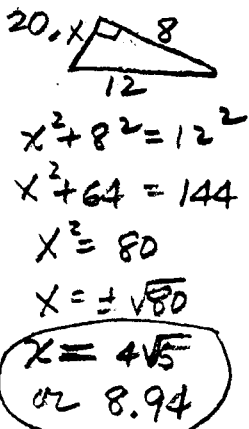 20. x 8
12
x² + 8² = 12²
x² + 64 = 144
x² = 80
x = ± √80
x = 4√5
or 8.94